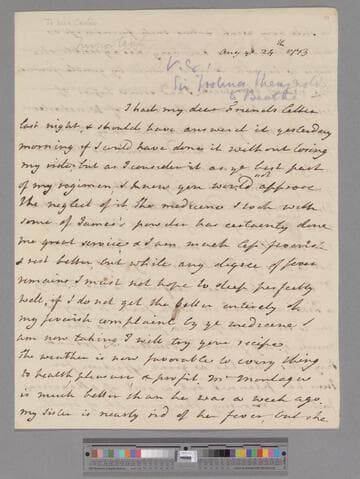 To Mrs Carter
Augst ye 24th 1773
V. &c
Sir Joshua Reynolds
& Beattie
I had my dear Friends Letter
last night, & should have answerd it yesterday
morning if I could have done it without losing
my ride, but as I consider it as ye best part
of my regimen, I knew you would not approve
the neglect of it. The medecine I took with
some of James's powder has certainly done
me great service & I am much less feverish
& rest better but while any degree of fever
remains I must not hope to sleep perfectly
well, if I do not get the better entirely of
my feverish complaint, by ye medecine I
am now taking I will try your recipe.
The weather is now favorable to every thing
to health pleasure & profit. Mr Montagu
is much better than he was a week ago,
my Sister is nearly rid of her fever, but she